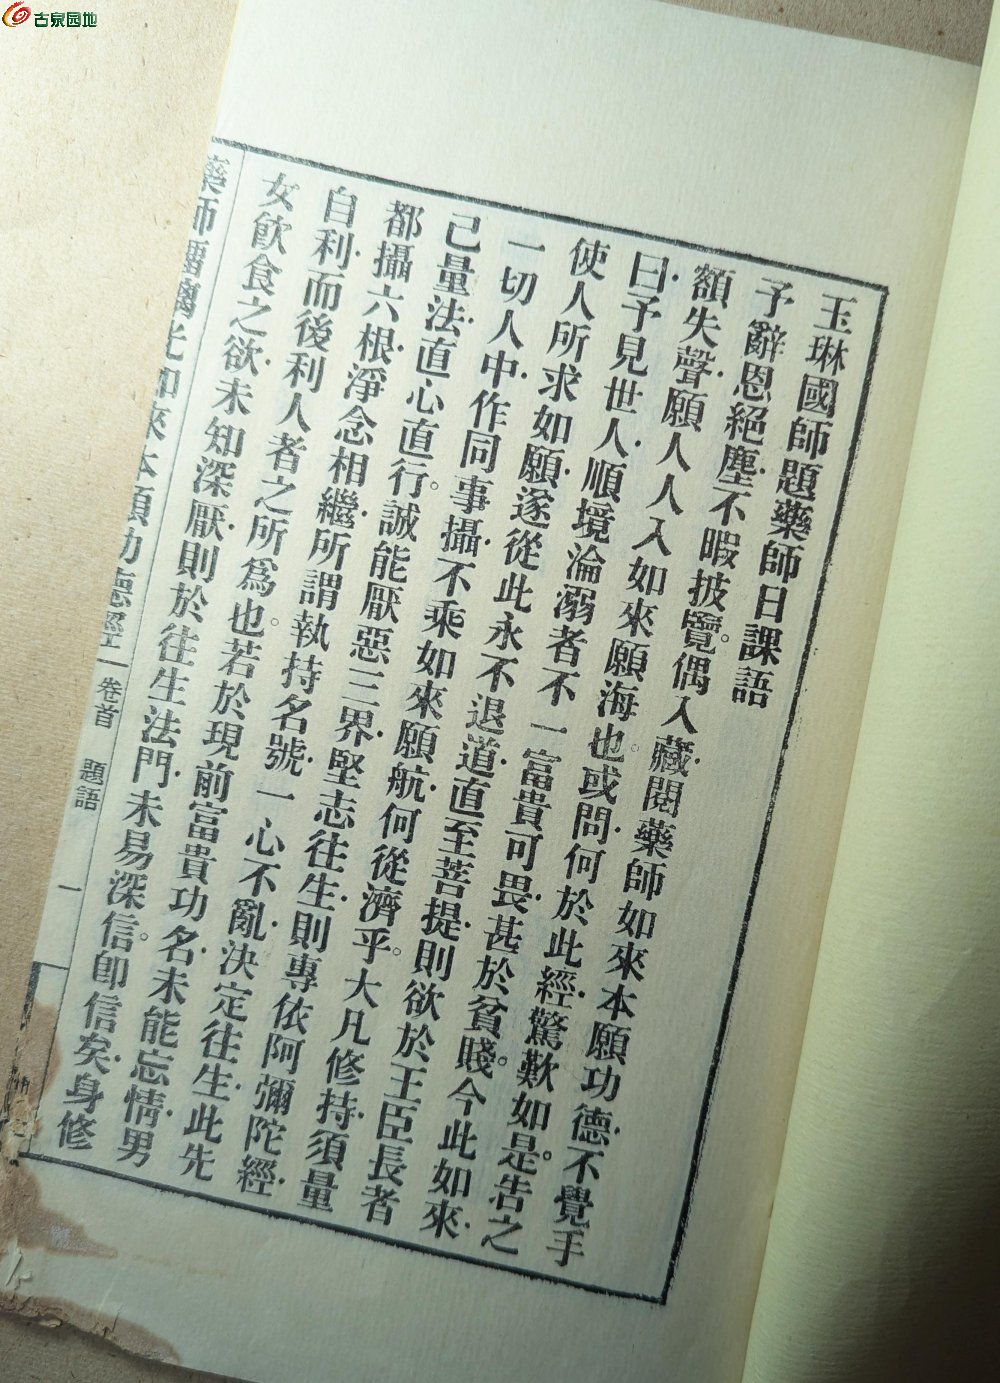 古泉园地
玉琳國師題藥師日課語
予辭恩絕塵不暇披覽。偶入藏閱藥師如來本願功德不覺手
額失聲願人人入如來願海也。或問何於此經驚歎如是。告之
曰予見世人順境淪溺者不一富貴可畏甚於貧賤。今此如來
使人所求如願遂從此永不退道直至菩提則欲於王臣長者
一切人中作同事攝不乘如來願航何從濟乎。大凡修持須量
己量法直心直行。誠能厭惡三界堅志往生則專依阿彌陀經
都攝六根淨念相繼所謂執持名號一心不亂決定往生此先
自利而後利人者之所為也。若於現前富貴功名未能忘情男
女飲食之欲未知深厭則於往生法門未易深信。即信矣身修
藥師瑠璃光如來本願功德經 卷首 題語 一